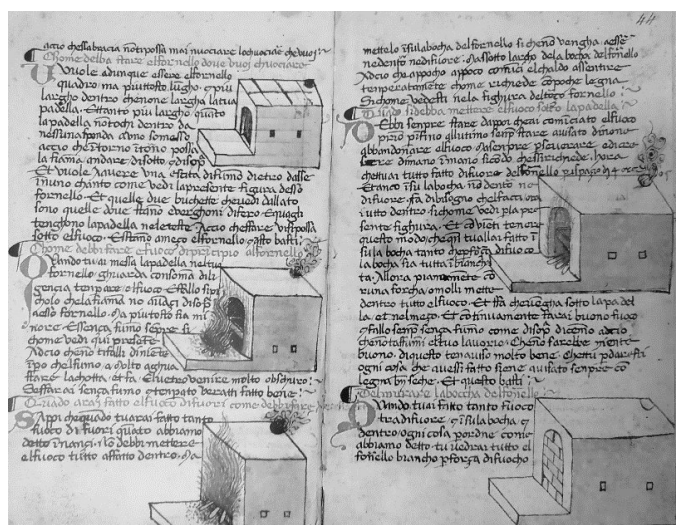 acio chessabracia nōti possa mai nuociare lochuocia che vuoi :~
Chome debba stare elfornello dove vuoi chuociare
Vuole adunque essere elfornello
quadro ma piuttosto lungho. o piu
largho dentro chenone largha latua
padella. Ettanto piu largho quāto
lapadella nōtochi dentro da
nessuna ponda aūno somesso
accio che ītorno ītorno possa
la fiama andare di sotto o disop̄
Et vuole havere una uscita di fūmo dietro dasse
ī uno chanto come vedi lapresente figura desso
fornello. Et quelle due buchette che vedi dallato
sono quelle dove stāno e verghoni di fero. Equagli
tenghono lapadella
sotto elfuoco. Essāno amezo elfornello q̄sto basti :~
Chome debbi fare elfuoco di principio alfornello
Quando tu ai messa lapadella nel tuo
fornello. ghuarda con soma dil
gencia tenpare elfuoco. Effallo si pi
cholo che la fiama nō vadi disop̄
aesso fornello. Ma piutosto sia mi
nore. Essenza fumo senpre si
chome vedi qui presente
Adcio che tifalli
īpo che lfumo a volto aghua
sfare lachotta. et fa. Elvetro venire molto obschuro :~
Esse farai senza fumo otenpato verratti fatto bene :~
Quādo arai fatto elfuoco di fuori come debbi fare
Sappi che quādo tu arai fatto tanto
fuoco di fuori quāto abbiamo
detto īnanzi. ilo debbi mettere
elfuoco tutto affatto dentro. Ma
44
mettelo ī sulabocha delfornello si che nō vengha aesse
ne dentro ne di fuore. Massotto largho dela bocha delfornello
Adcio che appocho appoco comīci elchaldo assentire
tenperatamente chome richiede cōpoche legna
Sichome vedesti nela fighura del terço fornello :~
Quādo si debba mettere elfuoco sotto lapadella
Debbi senpre stare dappoi che ai comīciato elfuoco
p̄rio p̄ īsino glultimo senp̄ stare avisato dinōne
abbandonare elfuoco. Ma senpre p̄severare
di mano īmano sicōdo che ssi richiede. hora
che tu ai tutto fatto di fuore delfornello
Et anco ī su labocha nō dento no
di fuore. fa dibisogno che faccia ora
ī utto dentro sichome vedi p̄la pre
sente fighura. Et cōvieti tenere
questo modo. che q̄n tu llai fatto ī
sula bocha tanto
labocha sia tutta ībianchi
ta. Allora pianamēte cō
runa forcha o molli mette
dentro tutto elfuoco. Et fa che vēgha sotto lapadel
la. et nelmeço. Et continuamente farai buono fuoco
q̄sfallo senp̄ senza fumo come disop̄ dicēmo adcio
che nōtaffumi eltuo lavorio. Che nō sarebbe mente
buono. diquesto tenaviso molto bene. Che ttu
ogni cosa che avessi fatto siene avisato senpre cō
legna bn̄ seche. Et questo basti :~
Del murare la boccha delfornello
Quando tu ai fatto tanto fuoco
tra difuore. q̄ ī sulabocha. q̄
dentro. ogni cosa p̄ordne como
abbiamo detto. tu vedrai tutto el
fornello biancho p̄força di fuocho